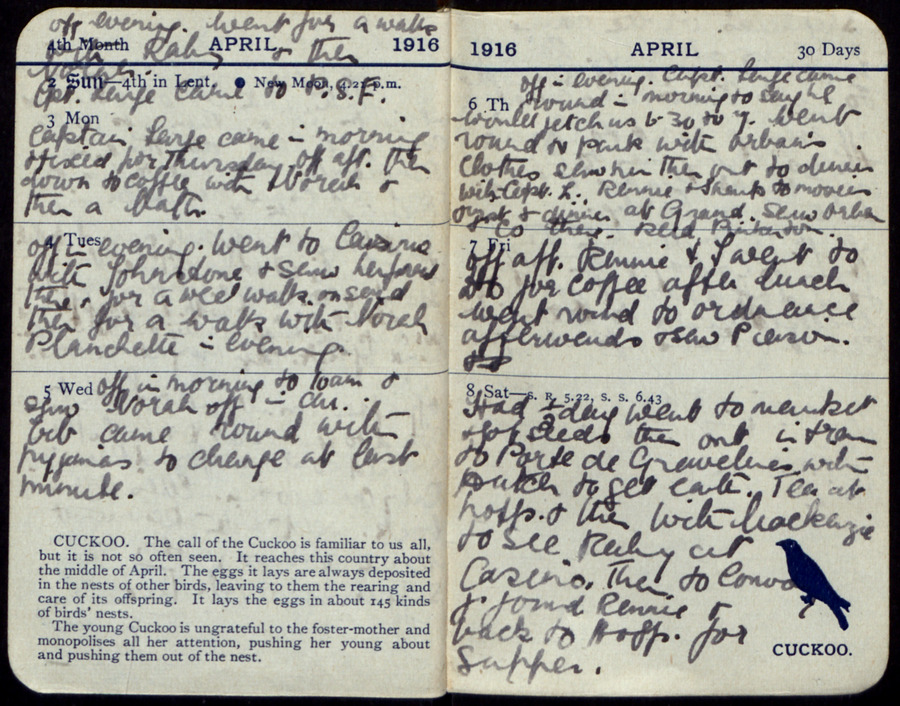 off evening. Went for a walk
4th Month APRIL 1916
with & then
2 Sun—4th in Lent. ● New Moon, 4.21 p.m.
Cpt. Large came to S.F.
3 Mon
Captain Large came in morning
& fixed for Thursday off aft. Then
down to coffee with Norah &
then a bath.
4 Tues
off in evening. Went to Casino
with Johnstone & saw
there, for a wee walk on sand
then for a walk with Norah
Planchette in evening.
5 Wed
off in morning to 10am &
saw Norah off in car.
came round with
pyjamas to change at last
minute.
CUCKOO. The call of the Cuckoo is familiar to us all,
but it is not so often seen. It reaches this country about
the middle of April. The eggs it lays are always deposited
in the nests of other birds, leaving to them the rearing and
care of its offspring. It lays the eggs in about 145 kinds
of birds' nests.
The young Cuckoo is ungrateful to the foster-mother and
monopolises all her attention, pushing her young about
and pushing them out of the nest.
1916 APRIL 30 Days
off in evening. Capt. Large came
6 Th
round in morning to say he
would fetch us 6-30 to 7. Went
round to park with
clothes then out to dinner
with Capt. L. Rennie & to movies
first & dinner at Grand. Saw
& Co there.
7 Fri
off aft. Rennie & I went to
for coffee after lunch
went round to ordnance
afterwards & saw Pierson.
8 Sat—S. R. 5.22, S. S. 6.43
Had ½ day went to market
& got seeds then out in tram
to Porte de Gravelines with
to get earth. Tea at
hosp. & then with Mackenzie
to see Ruby at
Casino. Then to Convo
& found Rennie &
back to Hosp. for
supper.
CUCKOO.